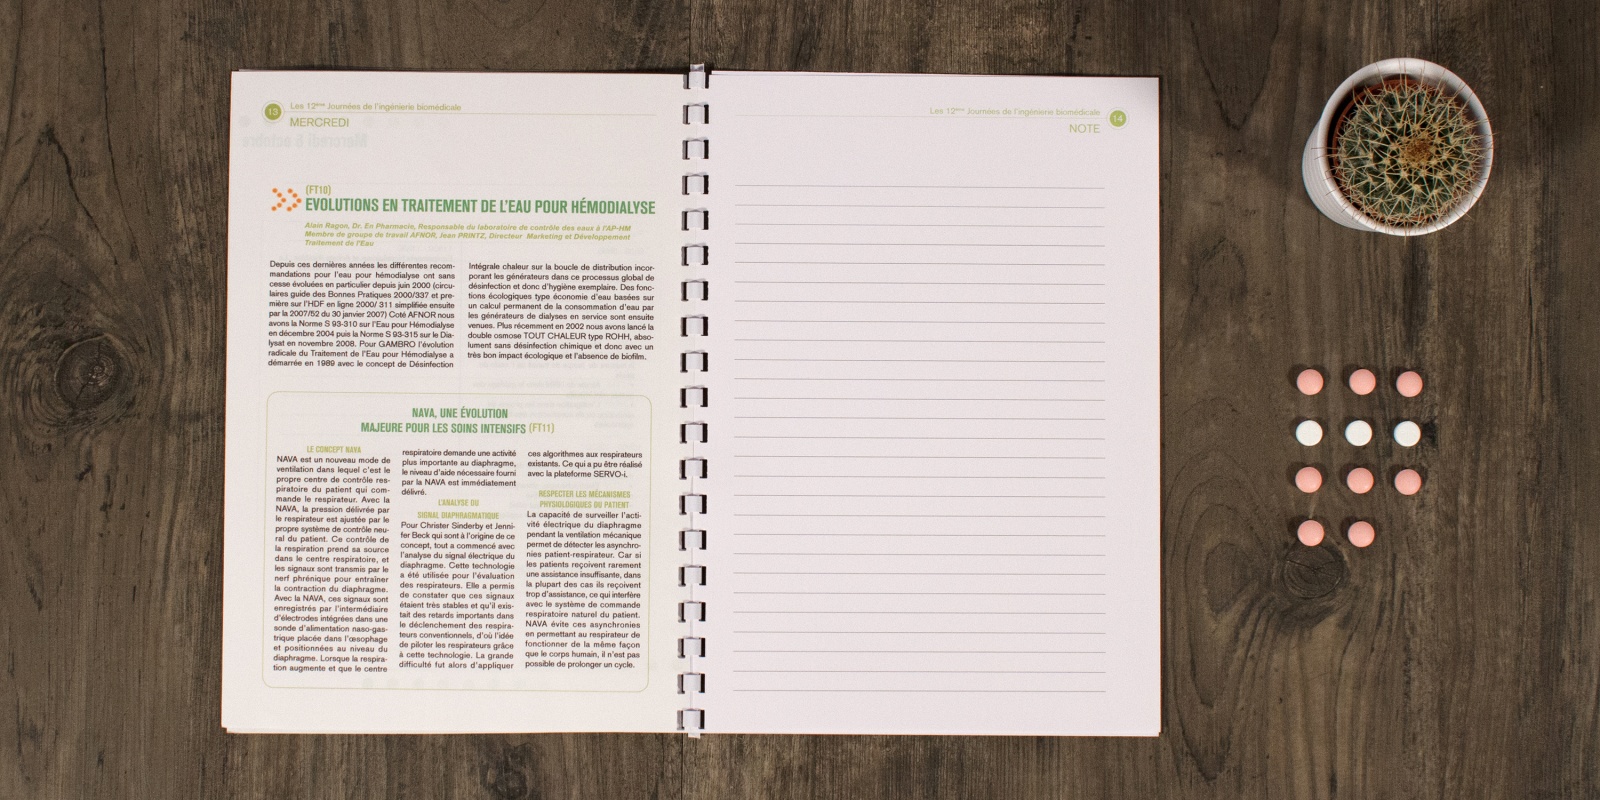 13
Les 12ème Journées de l'ingénierie biomédicale
MERCREDI
(FT10)
EVOLUTIONS EN TRAITEMENT DE L'EAU POUR HÉMODIALYSE
Alain Ragon, Dr. En Pharmacie, Responsable du laboratoire de contrôle des eaux à l'AP-HM
Membre de groupe de travail AFNOR, Jean PRINTZ, Directeur Marketing et Développement
Traitement de l'Eau
Depuis ces dernières années les différentes recom-
mandations pour l'eau pour hémodialyse ont sans
cesse évoluées en particulier depuis juin 2000 (circu-
laires guide des Bonnes Pratiques 2000/337 et pre-
mière sur l'HDF en ligne 2000/ 311 simplifiée ensuite
par la 2007/52 du 30 janvier 2007) Coté AFNOR nous
avons la Norme S 93-310 sur l'Eau pour Hémodialyse
en décembre 2004 puis la Norme S 93-315 sur le Dia-
lysat en novembre 2008. Pour GAMBRO l'évolution
radicale du Traitement de l'Eau pour Hémodialyse a
démarrée en 1989 avec le concept de Désinfection
Intégrale chaleur sur la boucle de distribution incor-
porant les générateurs dans ce processus global de
désinfection et donc d'hygiène exemplaire. Des fonc-
tions écologiques type économie d'eau basées sur
un calcul permanent de la consommation d'eau par
les générateurs de dialyses en service sont ensuite
venues. Plus récemment en 2002 nous avons lancé la
double osmose TOUT CHALEUR type ROHH, abso-
lument sans désinfection chimique et donc avec un
très bon impact écologique et l'absence de biofilm.
NAVA, UNE ÉVOLUTION
MAJEURE POUR LES SOINS INTENSIFS (FT11)
LE CONCEPT NAVA
NAVA est un nouveau mode de
ventilation dans lequel c'est le
propre centre de contrôle res-
piratoire du patient qui com-
mande le respirateur. Avec la
NAVA, la pression délivrée par
le respirateur est ajustée par le
propre système de contrôle neu-
ral du patient. Ce contrôle de
la respiration prend sa source
dans le centre respiratoire, et
les signaux sont transmis par le
nerf phrénique pour entraîner
la contraction du diaphragme.
Avec la NAVA, ces signaux sont
enregistrés par l'intermédiaire
d'électrodes intégrées dans une
sonde d'alimentation naso-gas-
trique placée dans l'œsophage
et positionnées au niveau du
diaphragme. Lorsque la respira-
tion augmente et que le centre
respiratoire demande une activité
plus importante au diaphragme,
le niveau d'aide nécessaire fourni
par la NAVA est immédiatement
délivré.
L'ANALYSE DU
SIGNAL DIAPHRAGMATIQUE
Pour Christer Sinderby et Jenni-
fer Beck qui sont à l'origine de ce
concept, tout a commencé avec
l'analyse du signal électrique du
diaphragme. Cette technologie
a été utilisée pour l'évaluation
des respirateurs. Elle a permis
de constater que ces signaux
étaient très stables et qu'il exis-
tait des retards importants dans
le déclenchement des respira-
teurs conventionnels, d'où l'idée
de piloter les respirateurs grâce
à cette technologie. La grande
difficulté fut alors d'appliquer
ces algorithmes aux respirateurs
existants. Ce qui a pu être réalisé
avec la plateforme SERVO-i.
RESPECTER LES MÉCANISMES
PHYSIOLOGIQUES DU PATIENT
La capacité de surveiller l'acti-
vité électrique du diaphragme
pendant la ventilation mécanique
permet de détecter les asynchro-
nies patient-respirateur. Car si
les patients reçoivent rarement
une assistance insuffisante, dans
la plupart des cas ils reçoivent
trop d'assistance, ce qui interfère
avec le système de commande
respiratoire naturel du patient.
NAVA évite ces asynchronies
en permettant au respirateur de
fonctionner de la même façon
que le corps humain, il n'est pas
possible de prolonger un cycle.
Les 12ème Journées de l'ingénierie biomédicale
14
NOTE